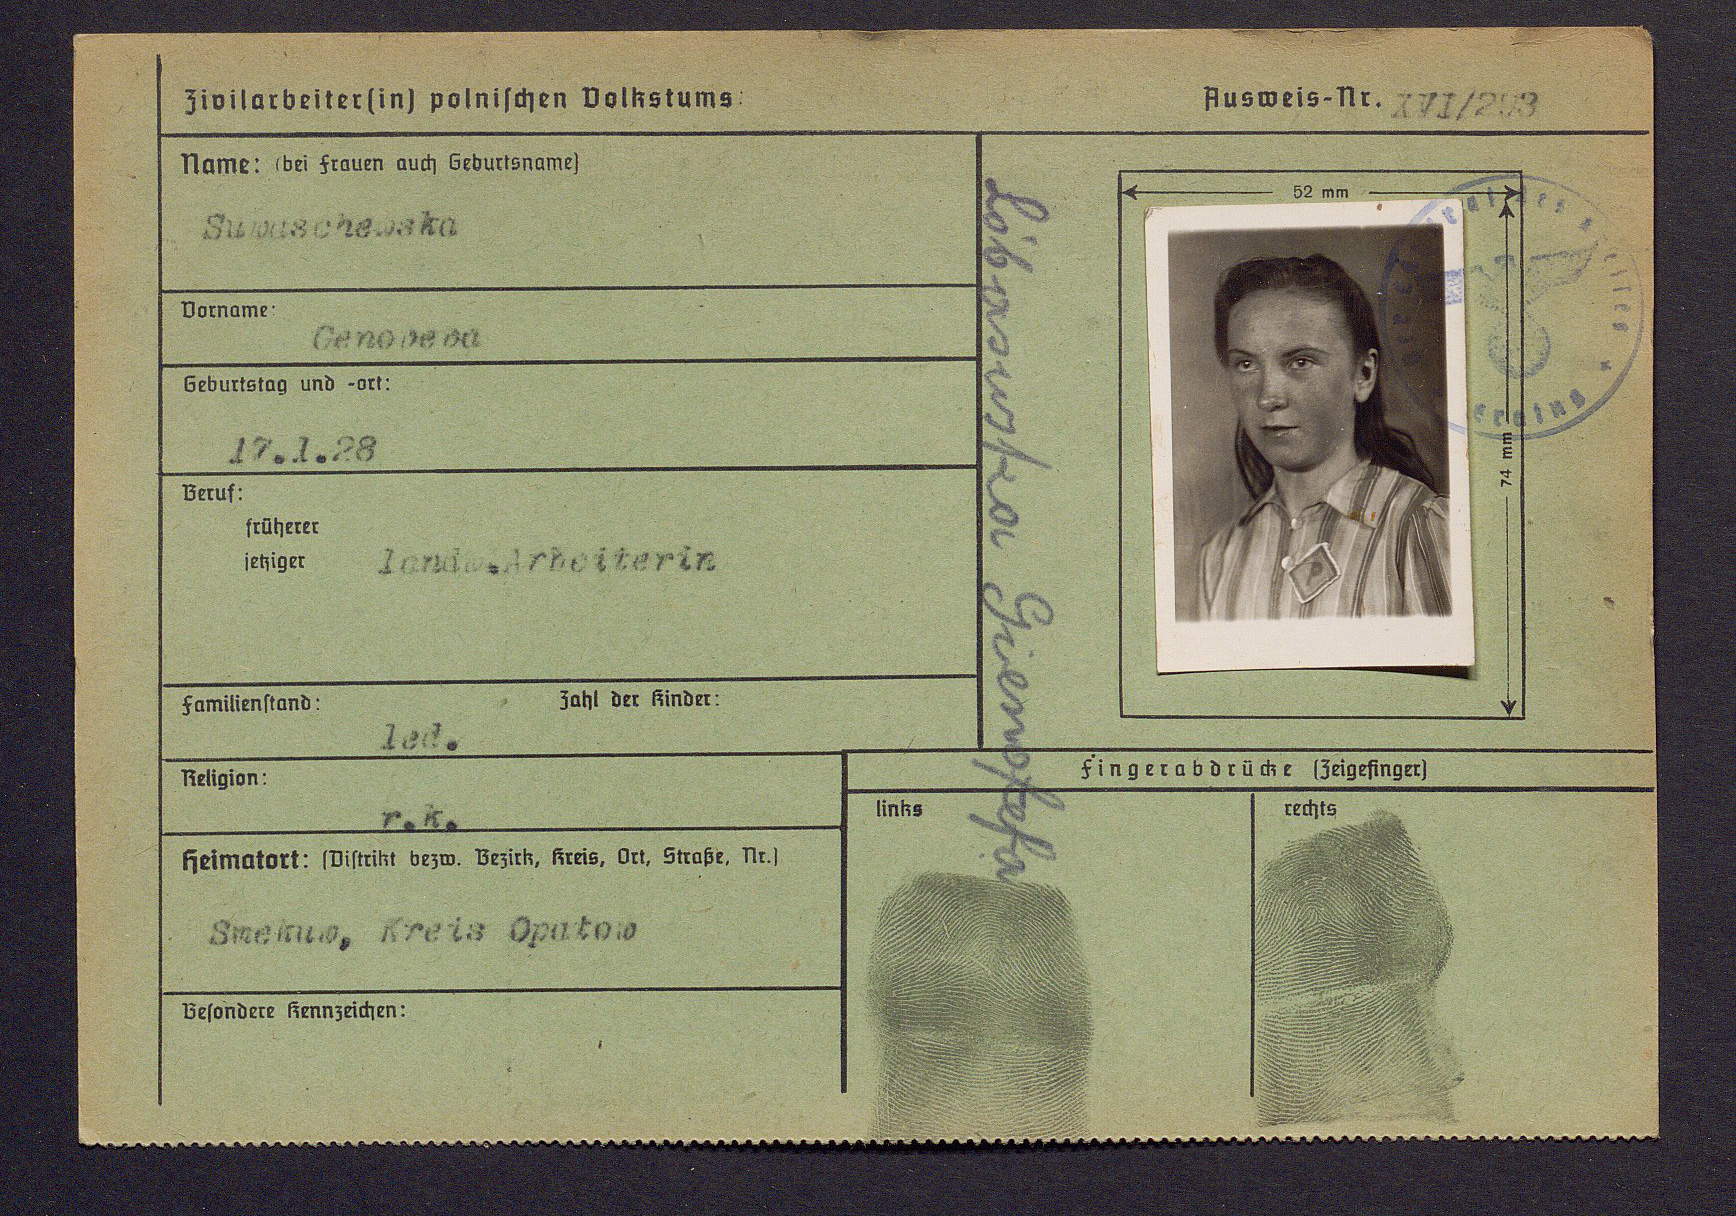 Zivilarbeiter(in) polnischen Volkstums:
Ausweis-Nr. XVI/293
Name: (bei Frauen auch Geburtsname)
Suwaschewska
Vorname:
Genovewa
Geburtstag und -ort:
17.1.28
Beruf:
früherer
jetziger landw.Arbeiterin
Familienstand: Zahl der Kinder:
led.
Religion:
r.k.
Heimatort: (Distrikt bezw. Bezirk, Kreis, Ort, Straße, Nr.)
Smekuw, Kreis Opatow
Besondere Kennzeichen:
52 mm
74 mm
P
Fingerabdrücke (Zeigefinger)
links
rechts